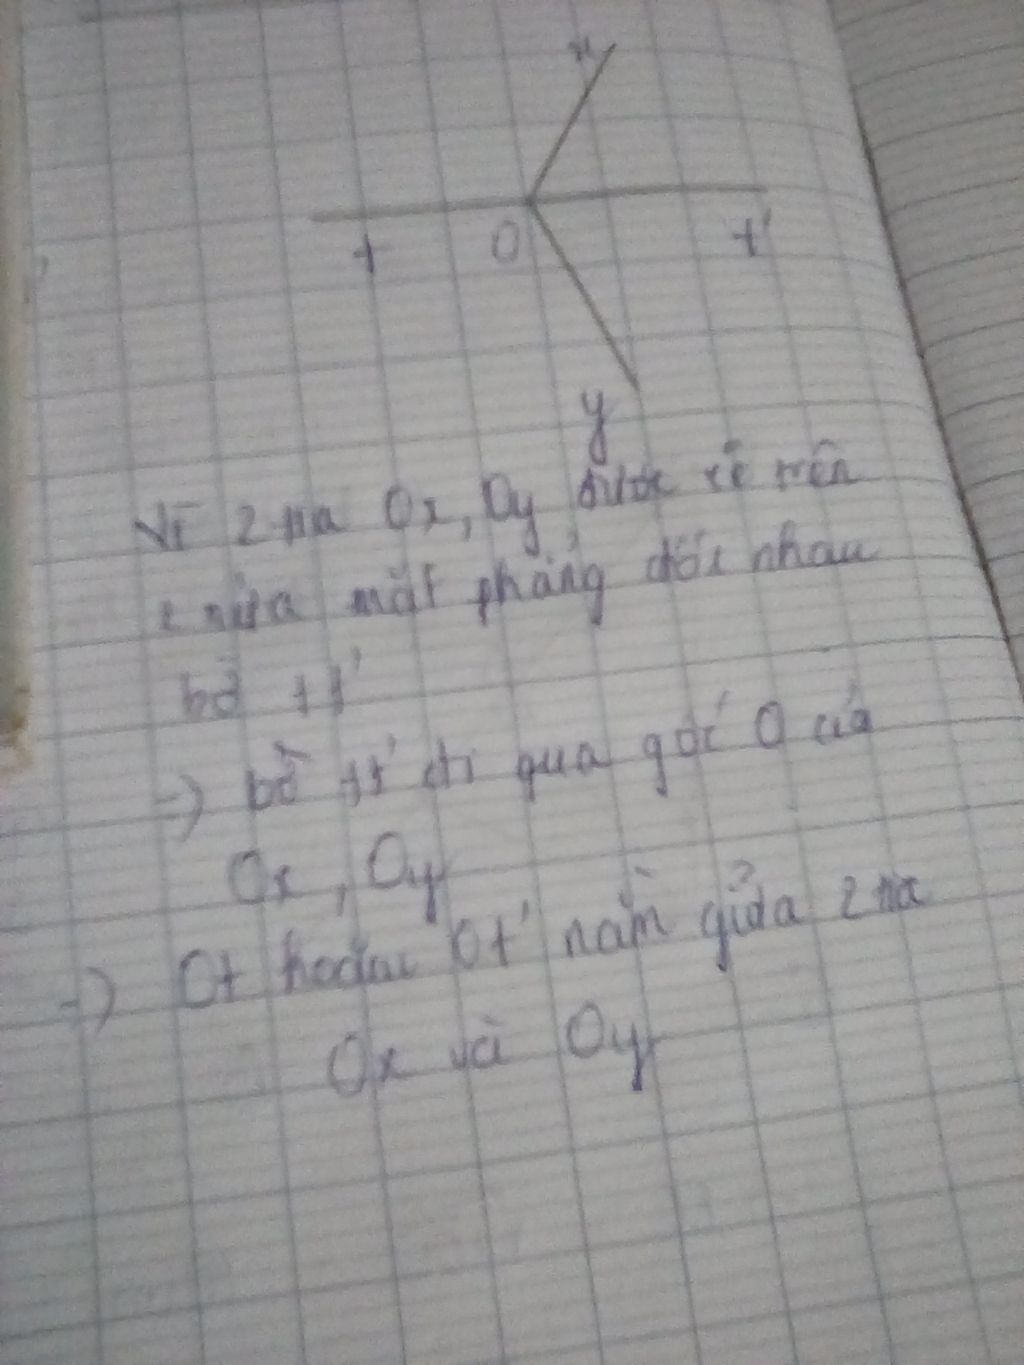 x
t O t'
y
Vì 2 tia Ox, Oy được vẽ trên
2 nửa mặt phẳng đối nhau
bờ tt'
=> bờ tt' đi qua gốc O của
Ox, Oy
=> Ot hoặc Ot' nằm giữa 2 tia
Ox và Oy